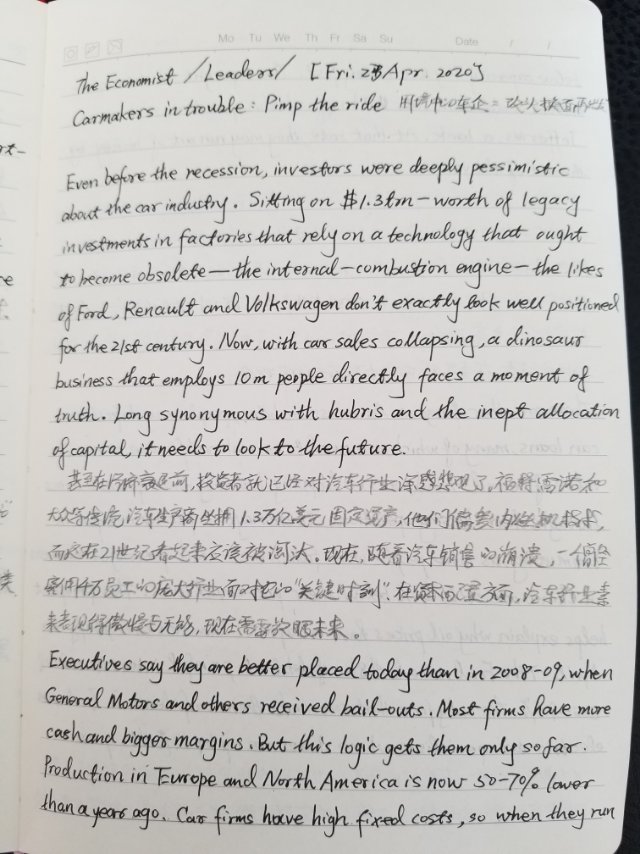 Mo Tu We Th Fr Sa Su Date / /
The Economist /Leaders/ [Fri. 23 Apr. 2020]
Carmakers in trouble: Pimp the ride 困境中的车企：
Even before the recession, investors were deeply pessimistic
about the car industry. Sitting on $1.3trn-worth of legacy
investments in factories that rely on a technology that ought
to become obsolete—the internal-combustion engine—the likes
of Ford, Renault and Volkswagen don't exactly look well positioned
for the 21st century. Now, with car sales collapsing, a dinosaur
business that employs 10m people directly faces a moment of
truth. Long synonymous with hubris and the inept allocation
of capital, it needs to look to the future.
甚至在经济衰退前，投资者就已经对汽车行业深感悲观了，福特雷诺和
大众等传统汽车生产商坐拥1.3万亿美元固定资产，他们偏爱内燃机技术，
而这在21世纪看起来应该被淘汰。现在，随着汽车销售的崩溃，一个直径
雇佣千万员工的庞大行业面对它的“关键时刻”。在资本配置方面，汽车行业素
来表现得傲慢与无能，现在需要放眼未来。
Executives say they are better placed today than in 2008-09, when
General Motors and others received bail-outs. Most firms have more
cash and bigger margins. But this logic gets them only so far.
Production in Europe and North America is now 50-70% lower
than a year ago. Car firms have high fixed costs, so when they run